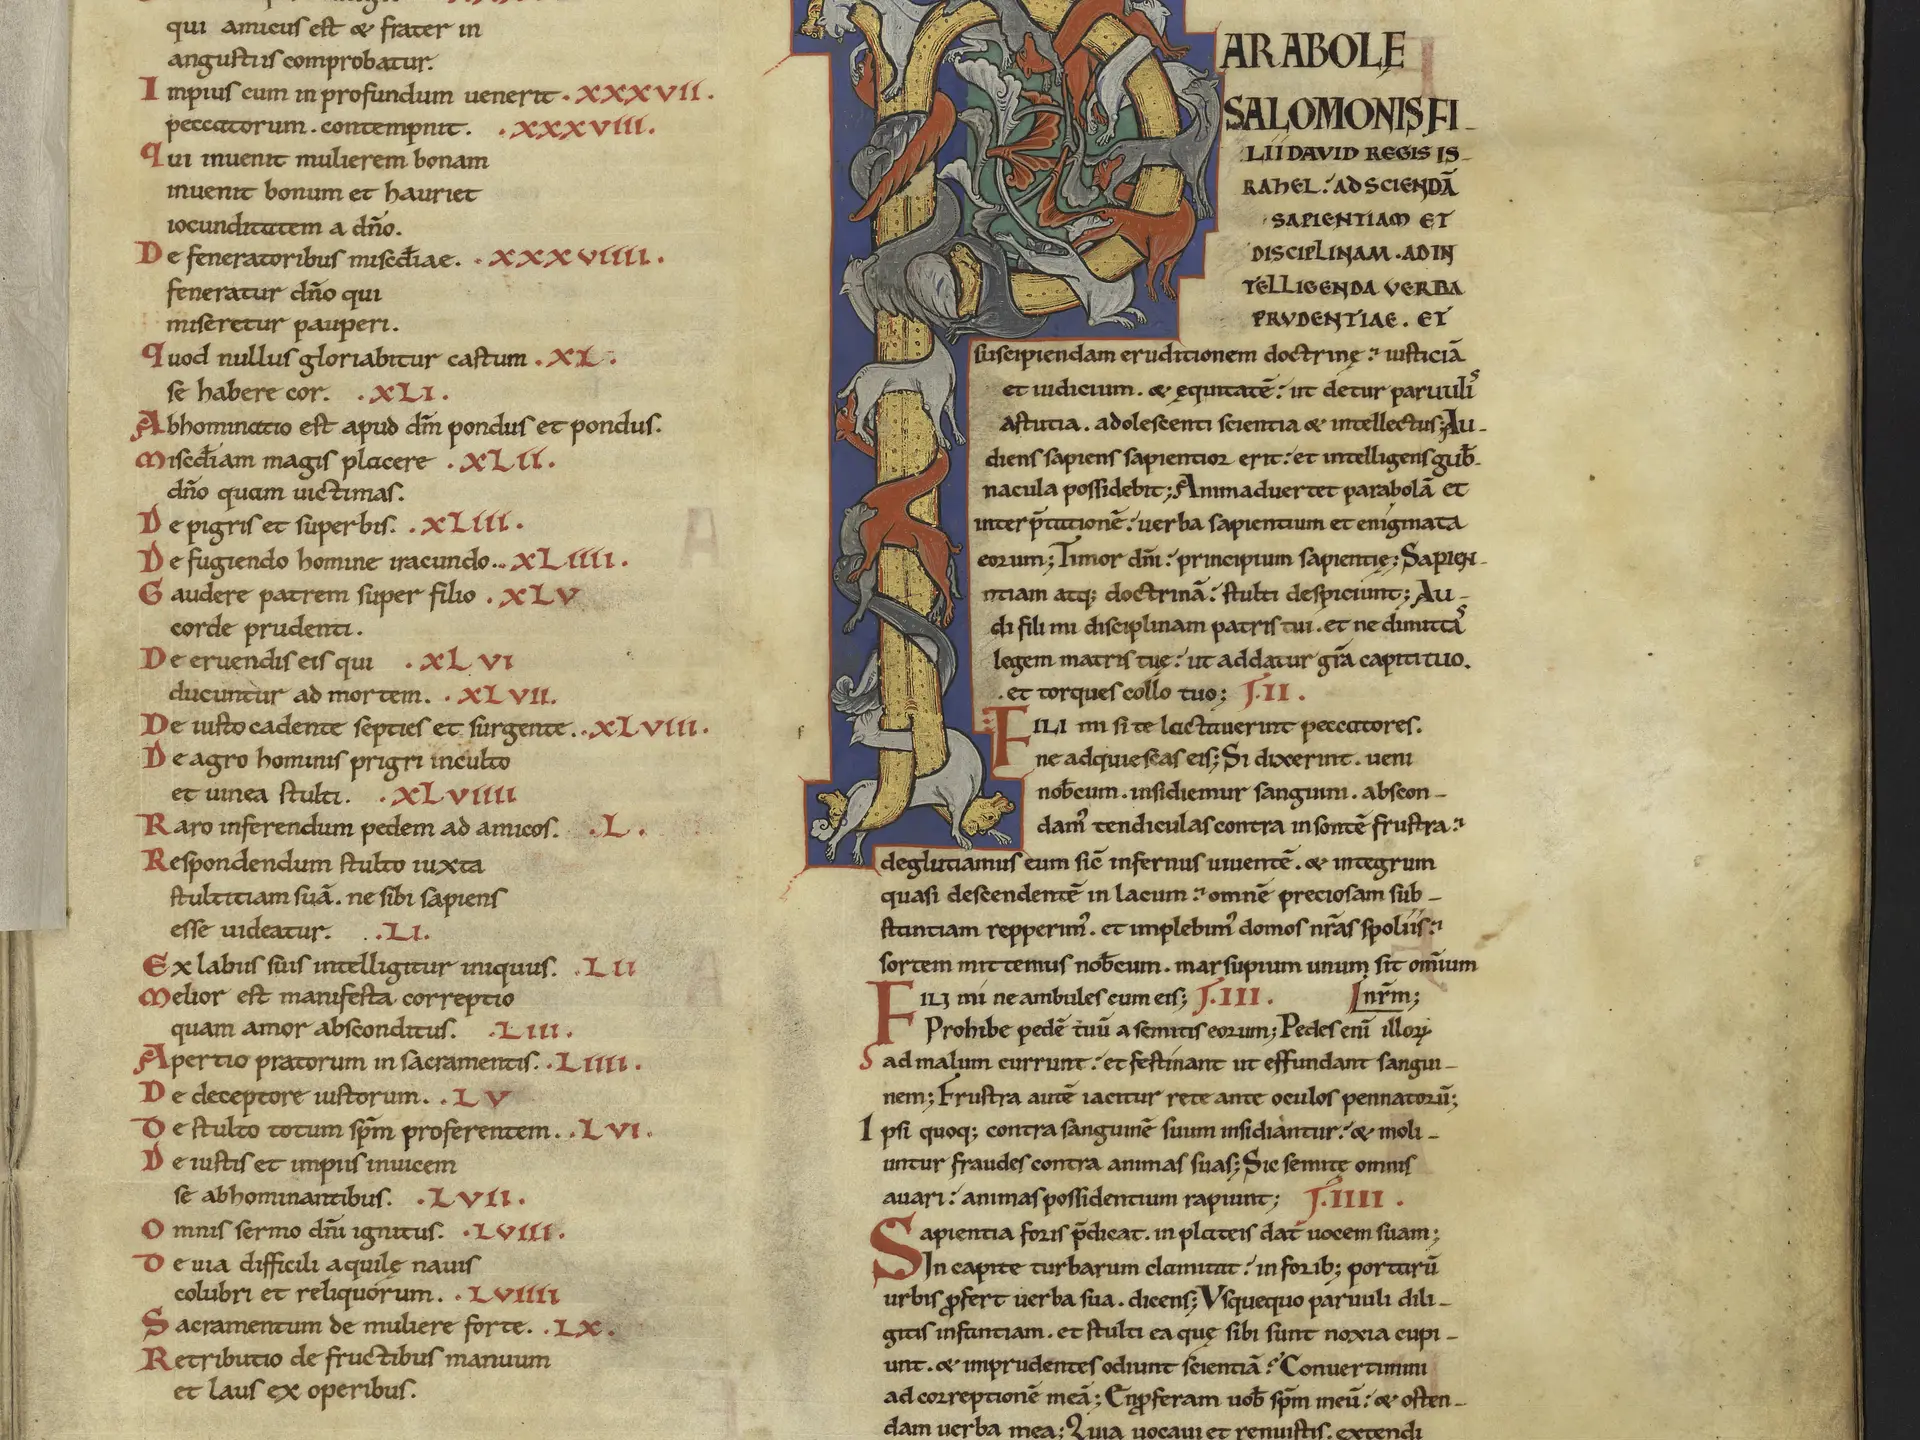 qui amicus est & frater in
angustiis comprobatur.
Impius cum in profundum uenerit . XXXVII .
peccatorum . contempnit. . XXXVIII .
qui inuenit mulierem bonam
inuenit bonum et hauriet
iocunditatem a dño.
De feneratoribus misedīae. . XXXVIIII .
feneratur dño qui
miseretur pauperi.
quod nullus gloriabitur castum . XL .
se habere cor. . XLI .
Abhominatio est apud dm̄ pondus et pondus.
misedīam magis placere . XLII .
dño quam uictimas.
De pigris et superbis. . XLIII .
De fugiendo homine iracundo.. XLIIII .
Gaudere patrem super filio . XLV
corde prudenti.
De eruendis eis qui . XLVI
ducuntur ad mortem. . XLVII.
De iusto cadente septies et surgente. . XLVIII .
De agro hominis prigri inculto
et uinea stulti. . XLVIIII
Raro inferendum pedem ad amicos. . L .
Respondendum stulto iuxta
stultitiam suā. ne sibi sapiens
esse uideatur. . LI.
Ex labiis suis intelligitur iniquus. . LII
melior est manifesta correptio
quam amor absconditus. . LIII .
Apertio pratorum in sacramentis. . LIIII .
De deceptore iustorum. . LV
De stulto totum spm̄ proferentem. . LVI .
De iustis et impiis inuicem
se abhominantibus. . LVII .
Omnis sermo dñi ignitus. . LVIII .
De uia difficili aquilę nauis
colubri et reliquorum. . LVIIII
Sacramentum de muliere forte. . LX .
Retributio de fructibus manuum
et laus ex operibus.
PARABOLĘ
SALOMONIS FI-
LII DAVID REGIS IS-
RAHEL. AD SCIENDĀ
SAPIENTIAM ET
DISCIPLINAM . AD IN
TELLIGENDA VERBA
PRVDENTIAE . ET
suscipiendam eruditionem doctrinę: iusticiā
et iudicium . & ęquitatē: ut detur paruulis
astutia . adolescenti scientia & intellectus; Au-
diens sapiens sapientior erit: et intelligens gub̄-
nacula possidebit; Animaduertet parabolā et
interp̄tationē: uerba sapientium et enigmata
eorum; Timor dñi: principium sapientię; Sapien-
tiam atq; doctrinā: stulti despiciunt; Au-
di fili mi disciplinam patris tui . et ne dimittas
legem matris tuę: ut addatur gr̄a capiti tuo.
. et torques collo tuo; .II .
FILI mi si te lactauerint peccatores.
ne adquiescas eis; Si dixerint . ueni
nob̄cum . insidiemur sanguini . abscon-
dam' tendiculas contra insontē frustra:
deglutiamus eum sic̄ infernus uiuentē . & integrum
quasi descendentē in lacum: omnē preciosam sub-
stantiam repperim' . et implebim' domos nr̄as spoliis:
sortem mittemus nob̄cum . marsupium unum sit omnium
nr̄m;
FILI mi ne ambules cum eis; .III .
Prohibe pedē tuū a semitis eorum; Pedes enī illorꝝ
ad malum currunt: et festinant ut effundant sangui-
nem; Frustra autē iacitur rete ante oculos pennatorū;
Ipsi quoq; contra sanguinē suum insidiantur: & moli-
untur fraudes contra animas suas; Sic semitę omnis
auari: animas possidentium rapiunt; .IIII .
Sapientia foris p̄dicat . in plateis dat uocem suam;
In capite turbarum clamitat: in forib; portarū
urbis ꝓfert uerba sua . dicens; Vsquequo paruuli dili-
gitis infantiam . et stulti ea quę sibi sunt noxia cupi-
unt . & imprudentes odiunt scientiā? Conuertimini
ad correptionē meā; En ꝓferam uob̄ spm̄ meū: & osten-
dam uerba mea; Quia uocaui et renuistis . extendi